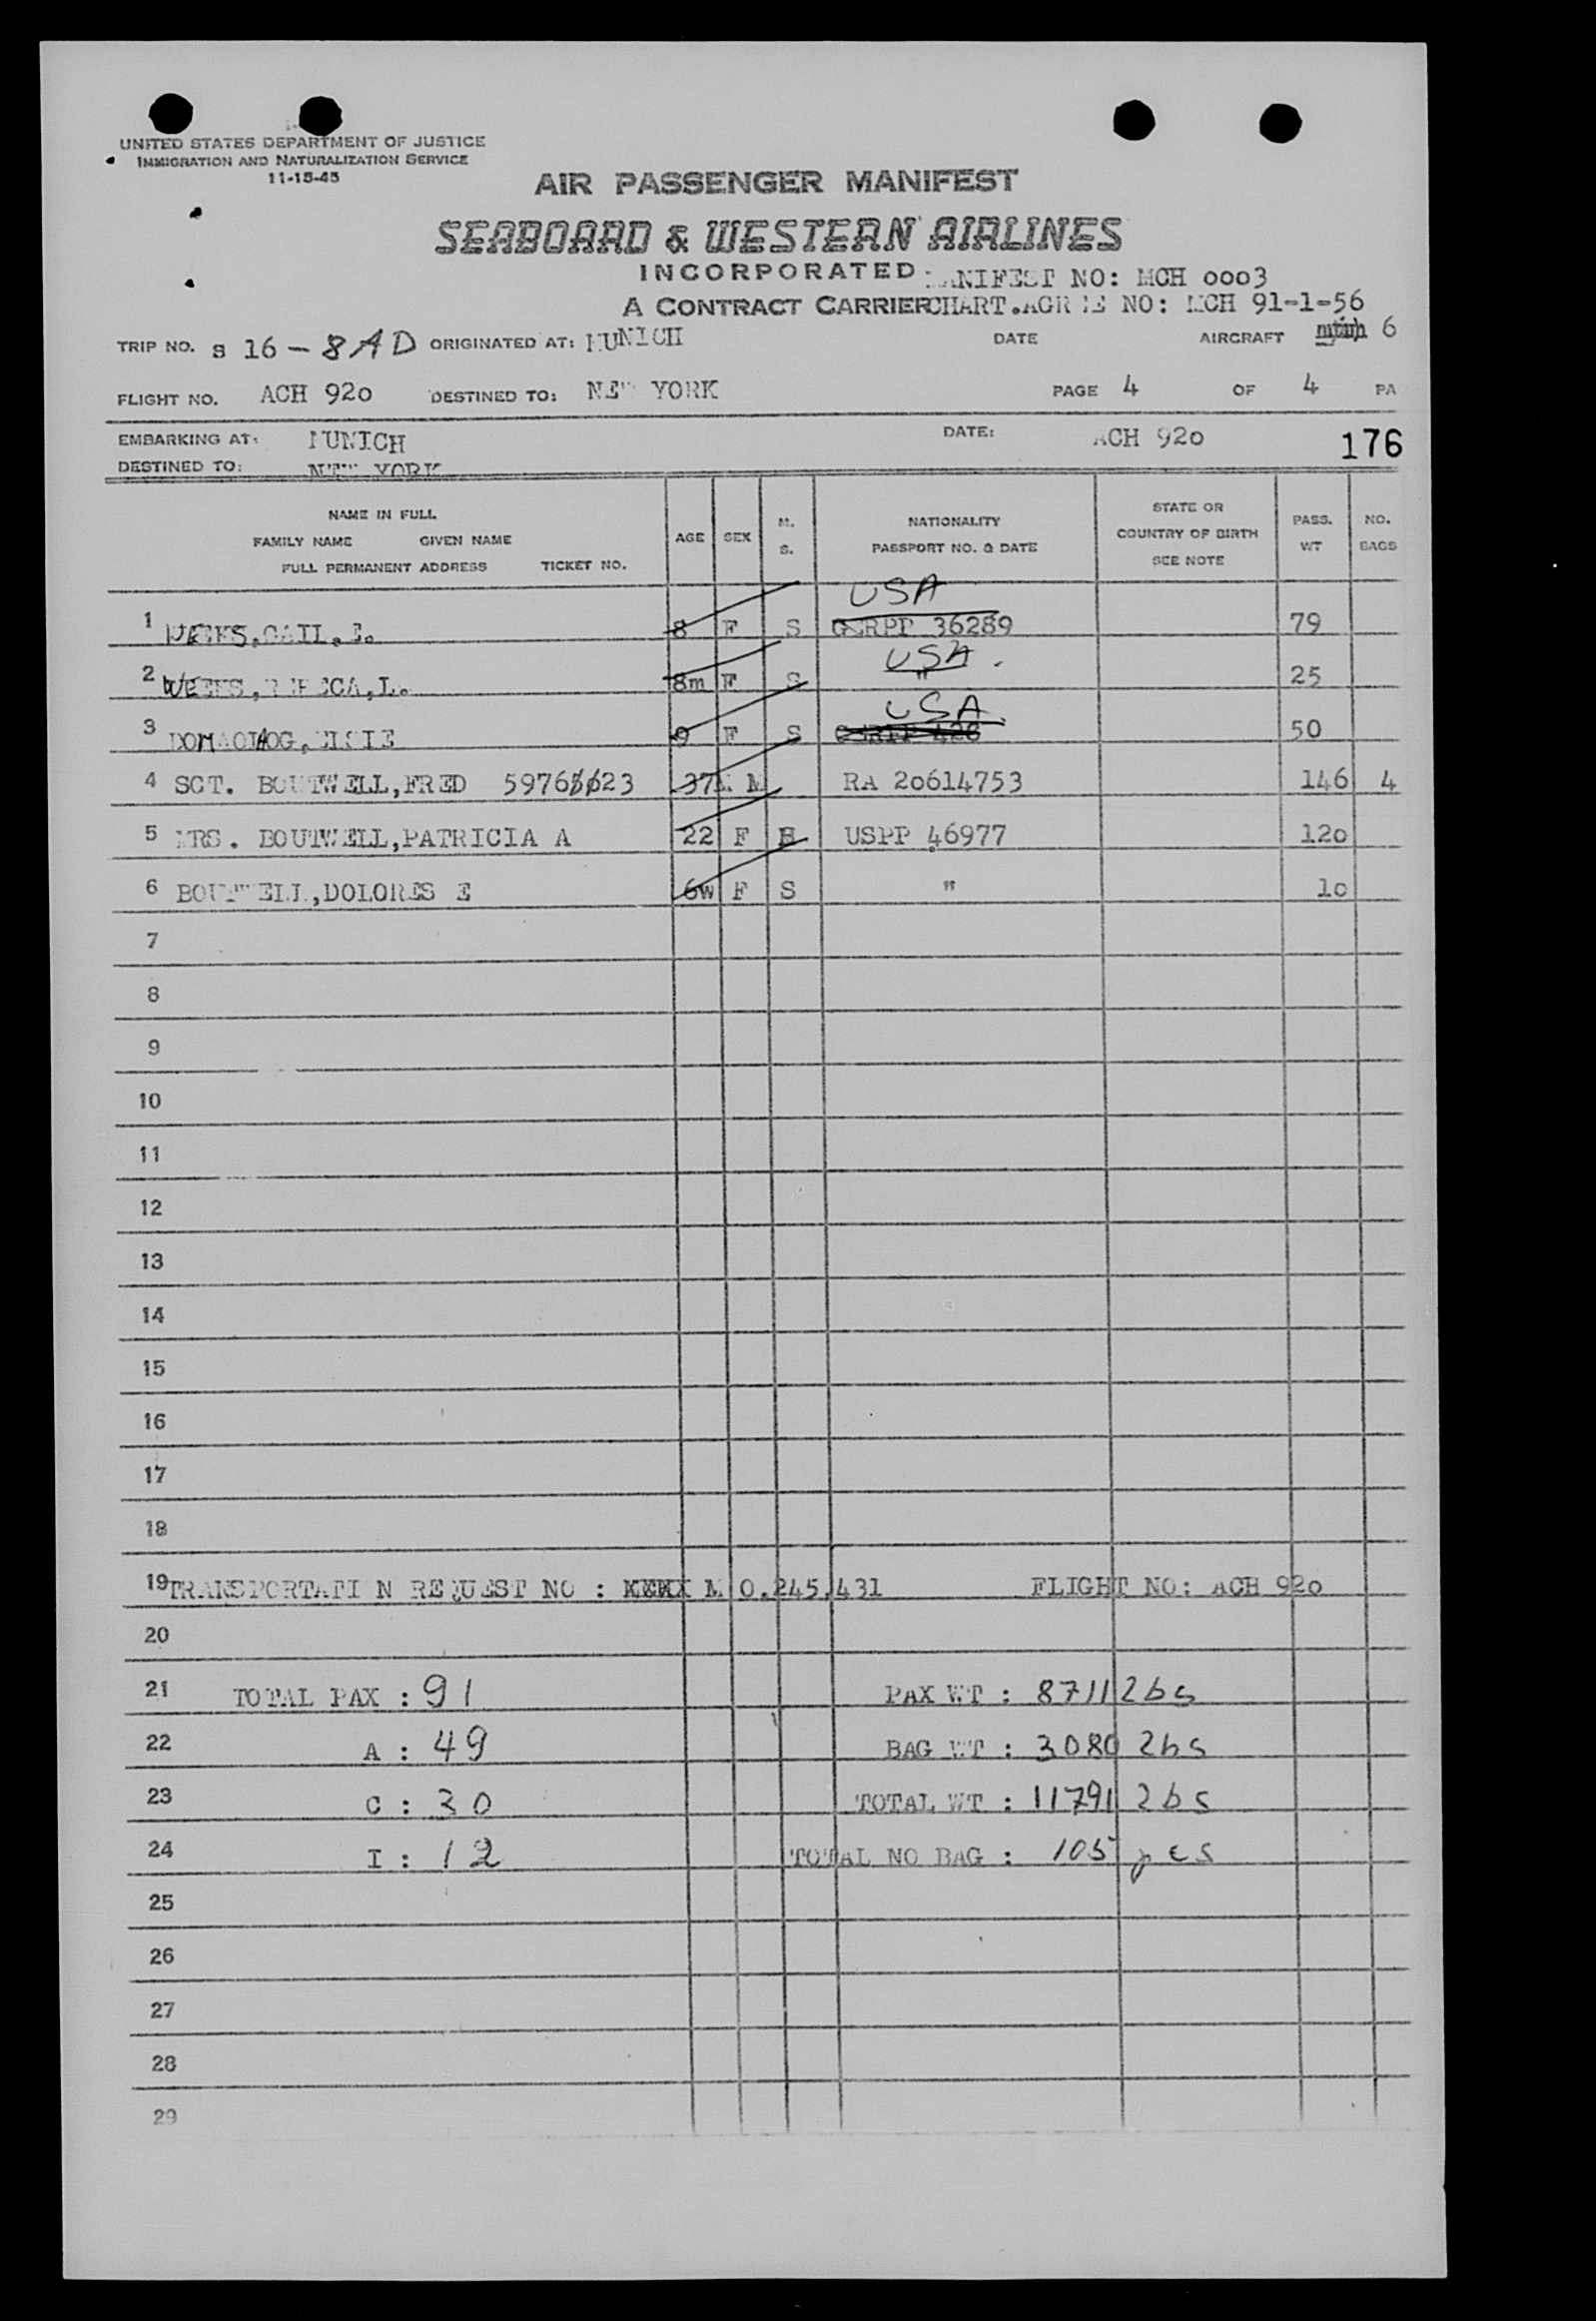 UNITED STATES DEPARTMENT OF JUSTICE
IMMIGRATION AND NATURALIZATION SERVICE
11-15-45
AIR PASSENGER MANIFEST
SEABOARD & WESTERN AIRLINES
INCORPORATED MANIFEST NO: MCH 0003
A CONTRACT CARRIER CHART.AGR NO: MCH 91-1-56
TRIP NO. S 16-8AD ORIGINATED AT: MUNICH DATE AIRCRAFT 6
FLIGHT NO. ACH 920 DESTINED TO: NEW YORK PAGE 4 OF 4 PA
EMBARKING AT: MUNICH DATE: ACH 920 176
DESTINED TO: NEW YORK
NAME IN FULL
FAMILY NAME GIVEN NAME
FULL PERMANENT ADDRESS TICKET NO.
AGE SEX M. S. NATIONALITY PASSPORT NO. & DATE STATE OR COUNTRY OF BIRTH SEE NOTE PASS. WT NO. BAGS
USA
1 WEEKS,GAIL,E. 8 F S 36289 79
USA
2 WEEKS,REBECCA,L. 8m F S " 25
USA
3 ELSIE 9 F S 50
4 SGT. BOUTWELL,FRED 37 M RA 20614753 146 4
5 MRS. BOUTWELL,PATRICIA A 22 F USPP 46977 120
6 BOUTWELL,DOLORES E 6w F S " 10
7
8
9
10
11
12
13
14
15
16
17
18
19 TRANSPORTATI N REQUEST NO : M 0.245.431 FLIGHT NO: ACH 920
20
21 TOTAL PAX : 91 PAX WT : 8711 lbs
22 A : 49 BAG WT : 3080 lbs
23 C : 30 TOTAL WT : 11791 lbs
24 I : 12 TOTAL NO BAG : 105 pcs
25
26
27
28
29